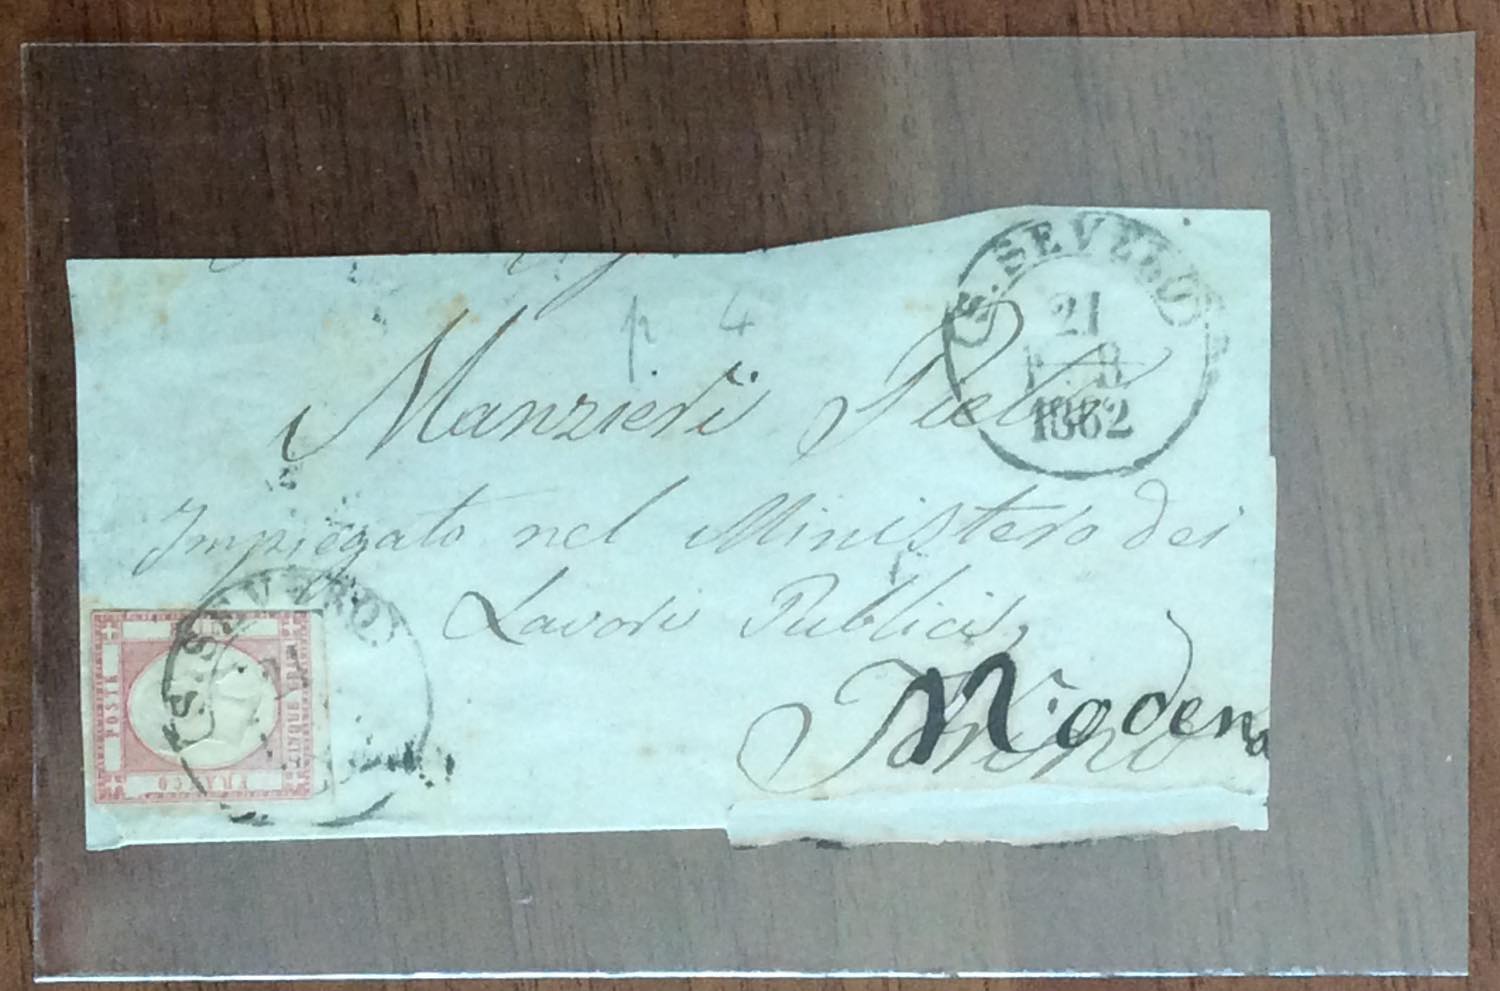 S. SEVERO
21
1862
p. 4
Manzieri
Impiegato nel Ministero dei
Lavori Publici,
Torino
Modena
S. SEVERO
POSTE
CINQUE GRANA
FRANCO